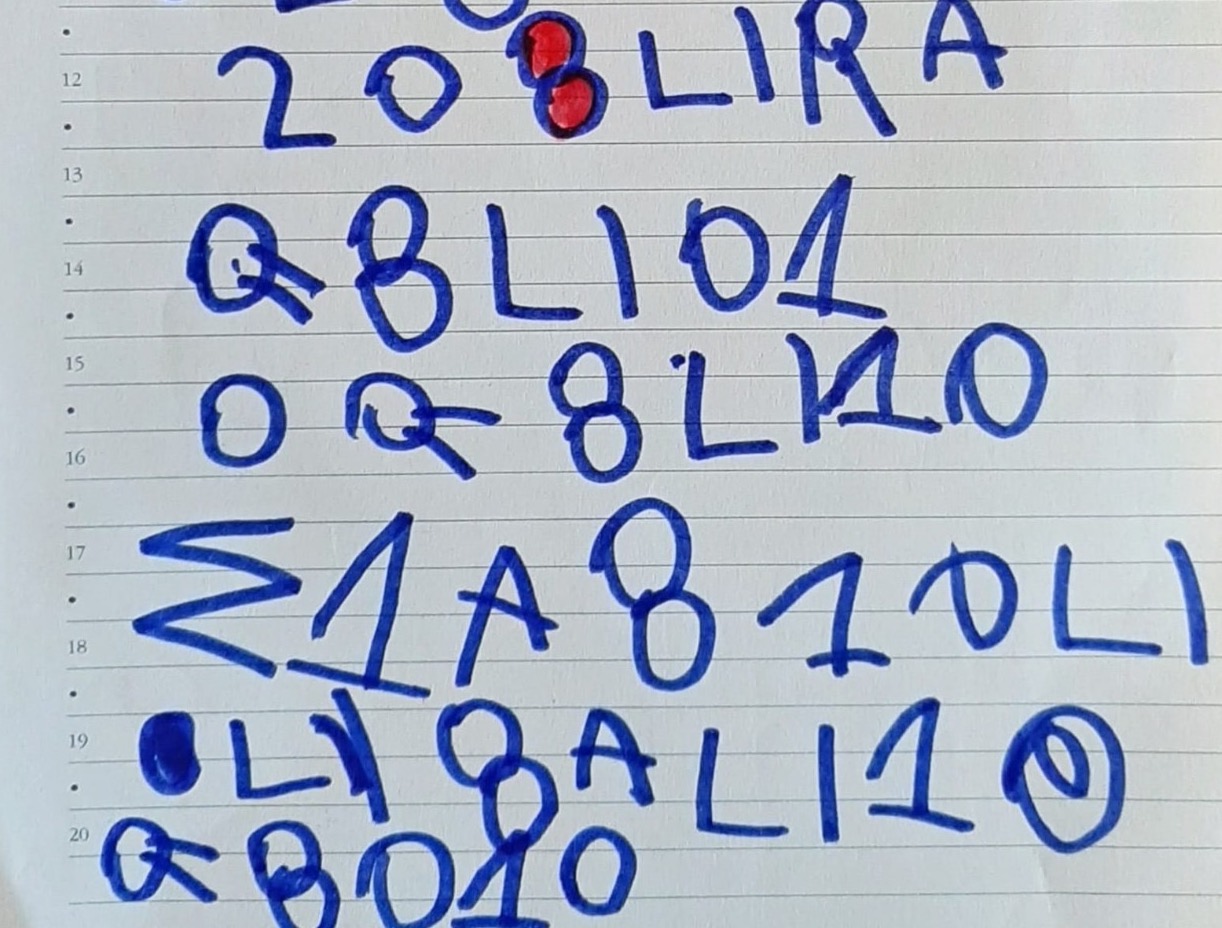 12
20 8LIRA
13
14
Q8LI01
15
0Q8LI10
16
17
Σ1A810LI
18
19
0LI8ALI10
20
Q8010